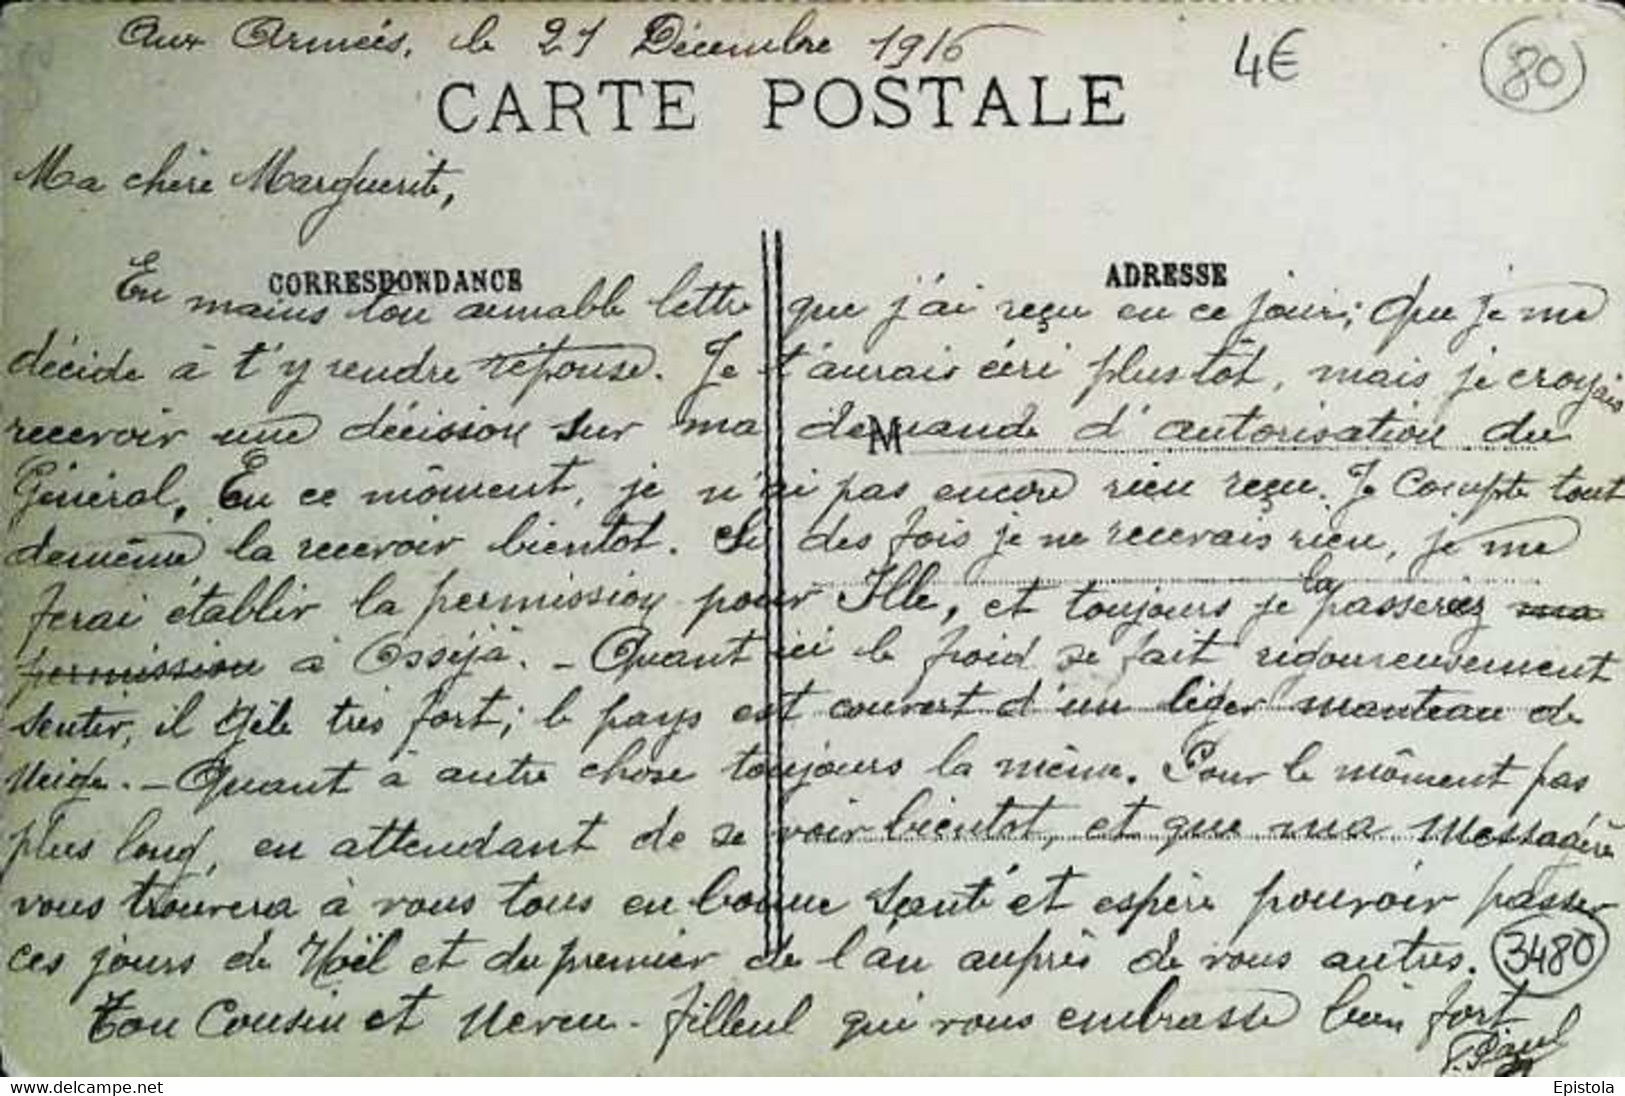 Aux Armées, le 21 Décembre 1916
4€
80
CARTE POSTALE
Ma chère Marguerite,
CORRESPONDANCE
ADRESSE
En mains ton aimable lettre que j'ai reçu en ce jour; que je me
décide à t'y rendre réponse. Je t'aurais écri plus tôt, mais je croyais
recevoir une décision sur ma demande d'autorisation du
M
Général, En ce môment, je n'ai pas encore rien reçu. Je Compte tout
demême la recevoir bientôt. Si des fois je ne recevais rien, je me
ferai établir la permission pour Ille, et toujours je la passeriez ma
permission à Osséja. – Quant ici le froid se fait rigoureusement
sentir, il gèle très fort; le pays est couvert d'un léger manteau de
Neige. – Quant à autre chose toujours la même. Pour le môment pas
plus long, en attendant de se voir bientôt, et que ma Messagère
vous trouvera à vous tous en bonne santé et espère pouvoir passer
ces jours de Noël et du premier de l'an auprès de vous autres.
3480
Ton Cousin et Neveu - filleul qui vous embrasse bien fort
Paul
https://www.delcampe.net
Epistola